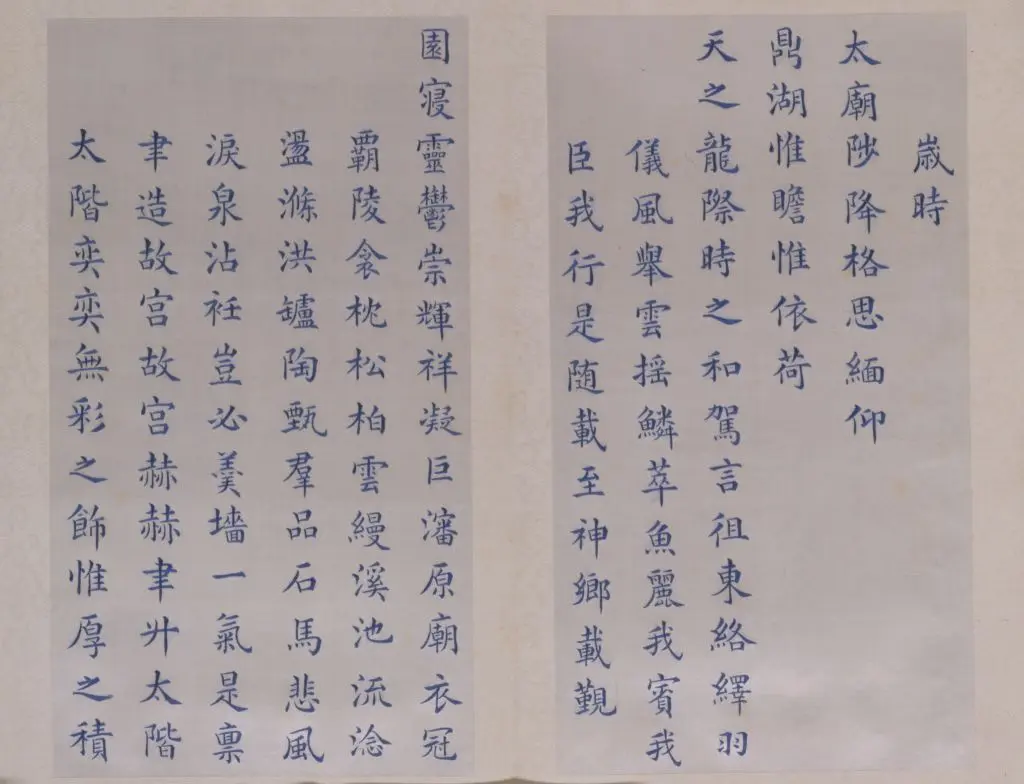 歲時
太廟陟降格思緬仰
鼎湖惟瞻惟依荷
天之龍際時之和駕言徂東絡繹羽
儀風舉雲搖鱗萃魚麗我賓我
臣我行是随載至神鄉載覲
園寝靈鬱崇輝祥凝巨瀋原廟衣冠
覇陵衾枕松柏雲縵溪池流淰
盪滌洪鑪陶甄羣品石馬悲風
淚泉沾衽豈必羹墻一氣是禀
聿造故宫故宫赫赫聿升太階
太階奕奕無彩之飾惟厚之積